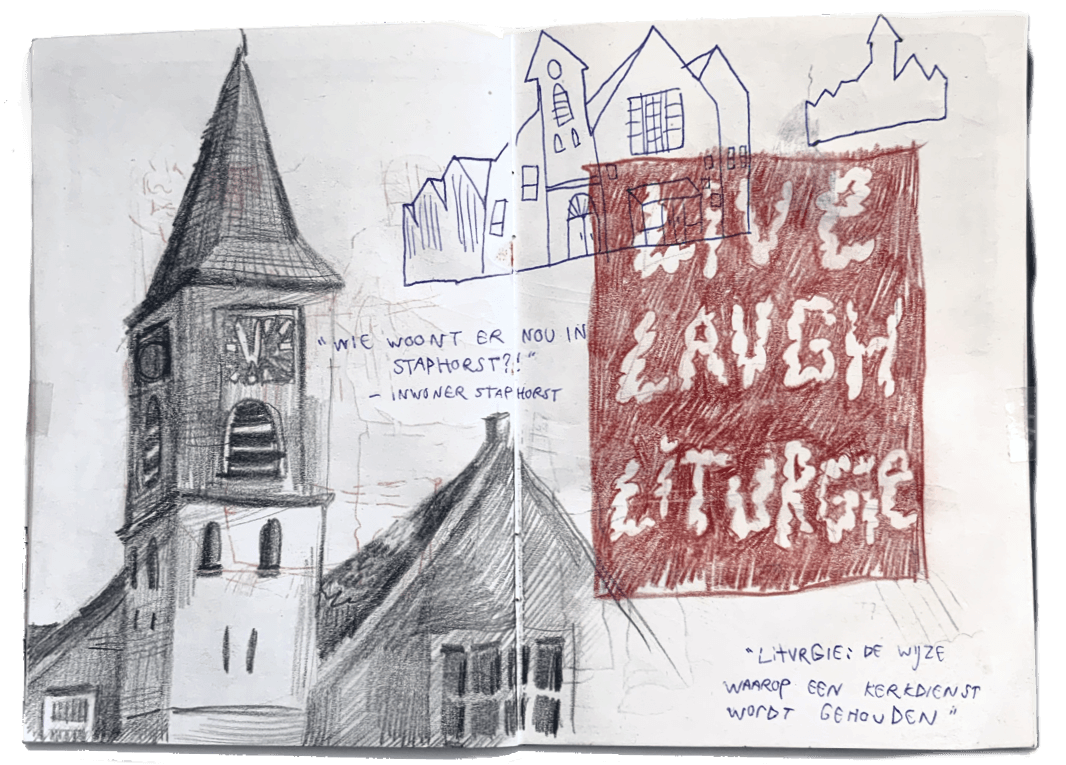 "WIE WOONT ER NOU IN
STAPHORST?!"
- INWONER STAPHORST
LIVE
LAUGH
LITURGIE
"LITURGIE: DE WIJZE
WAAROP EEN KERKDIENST
WORDT GEHOUDEN"